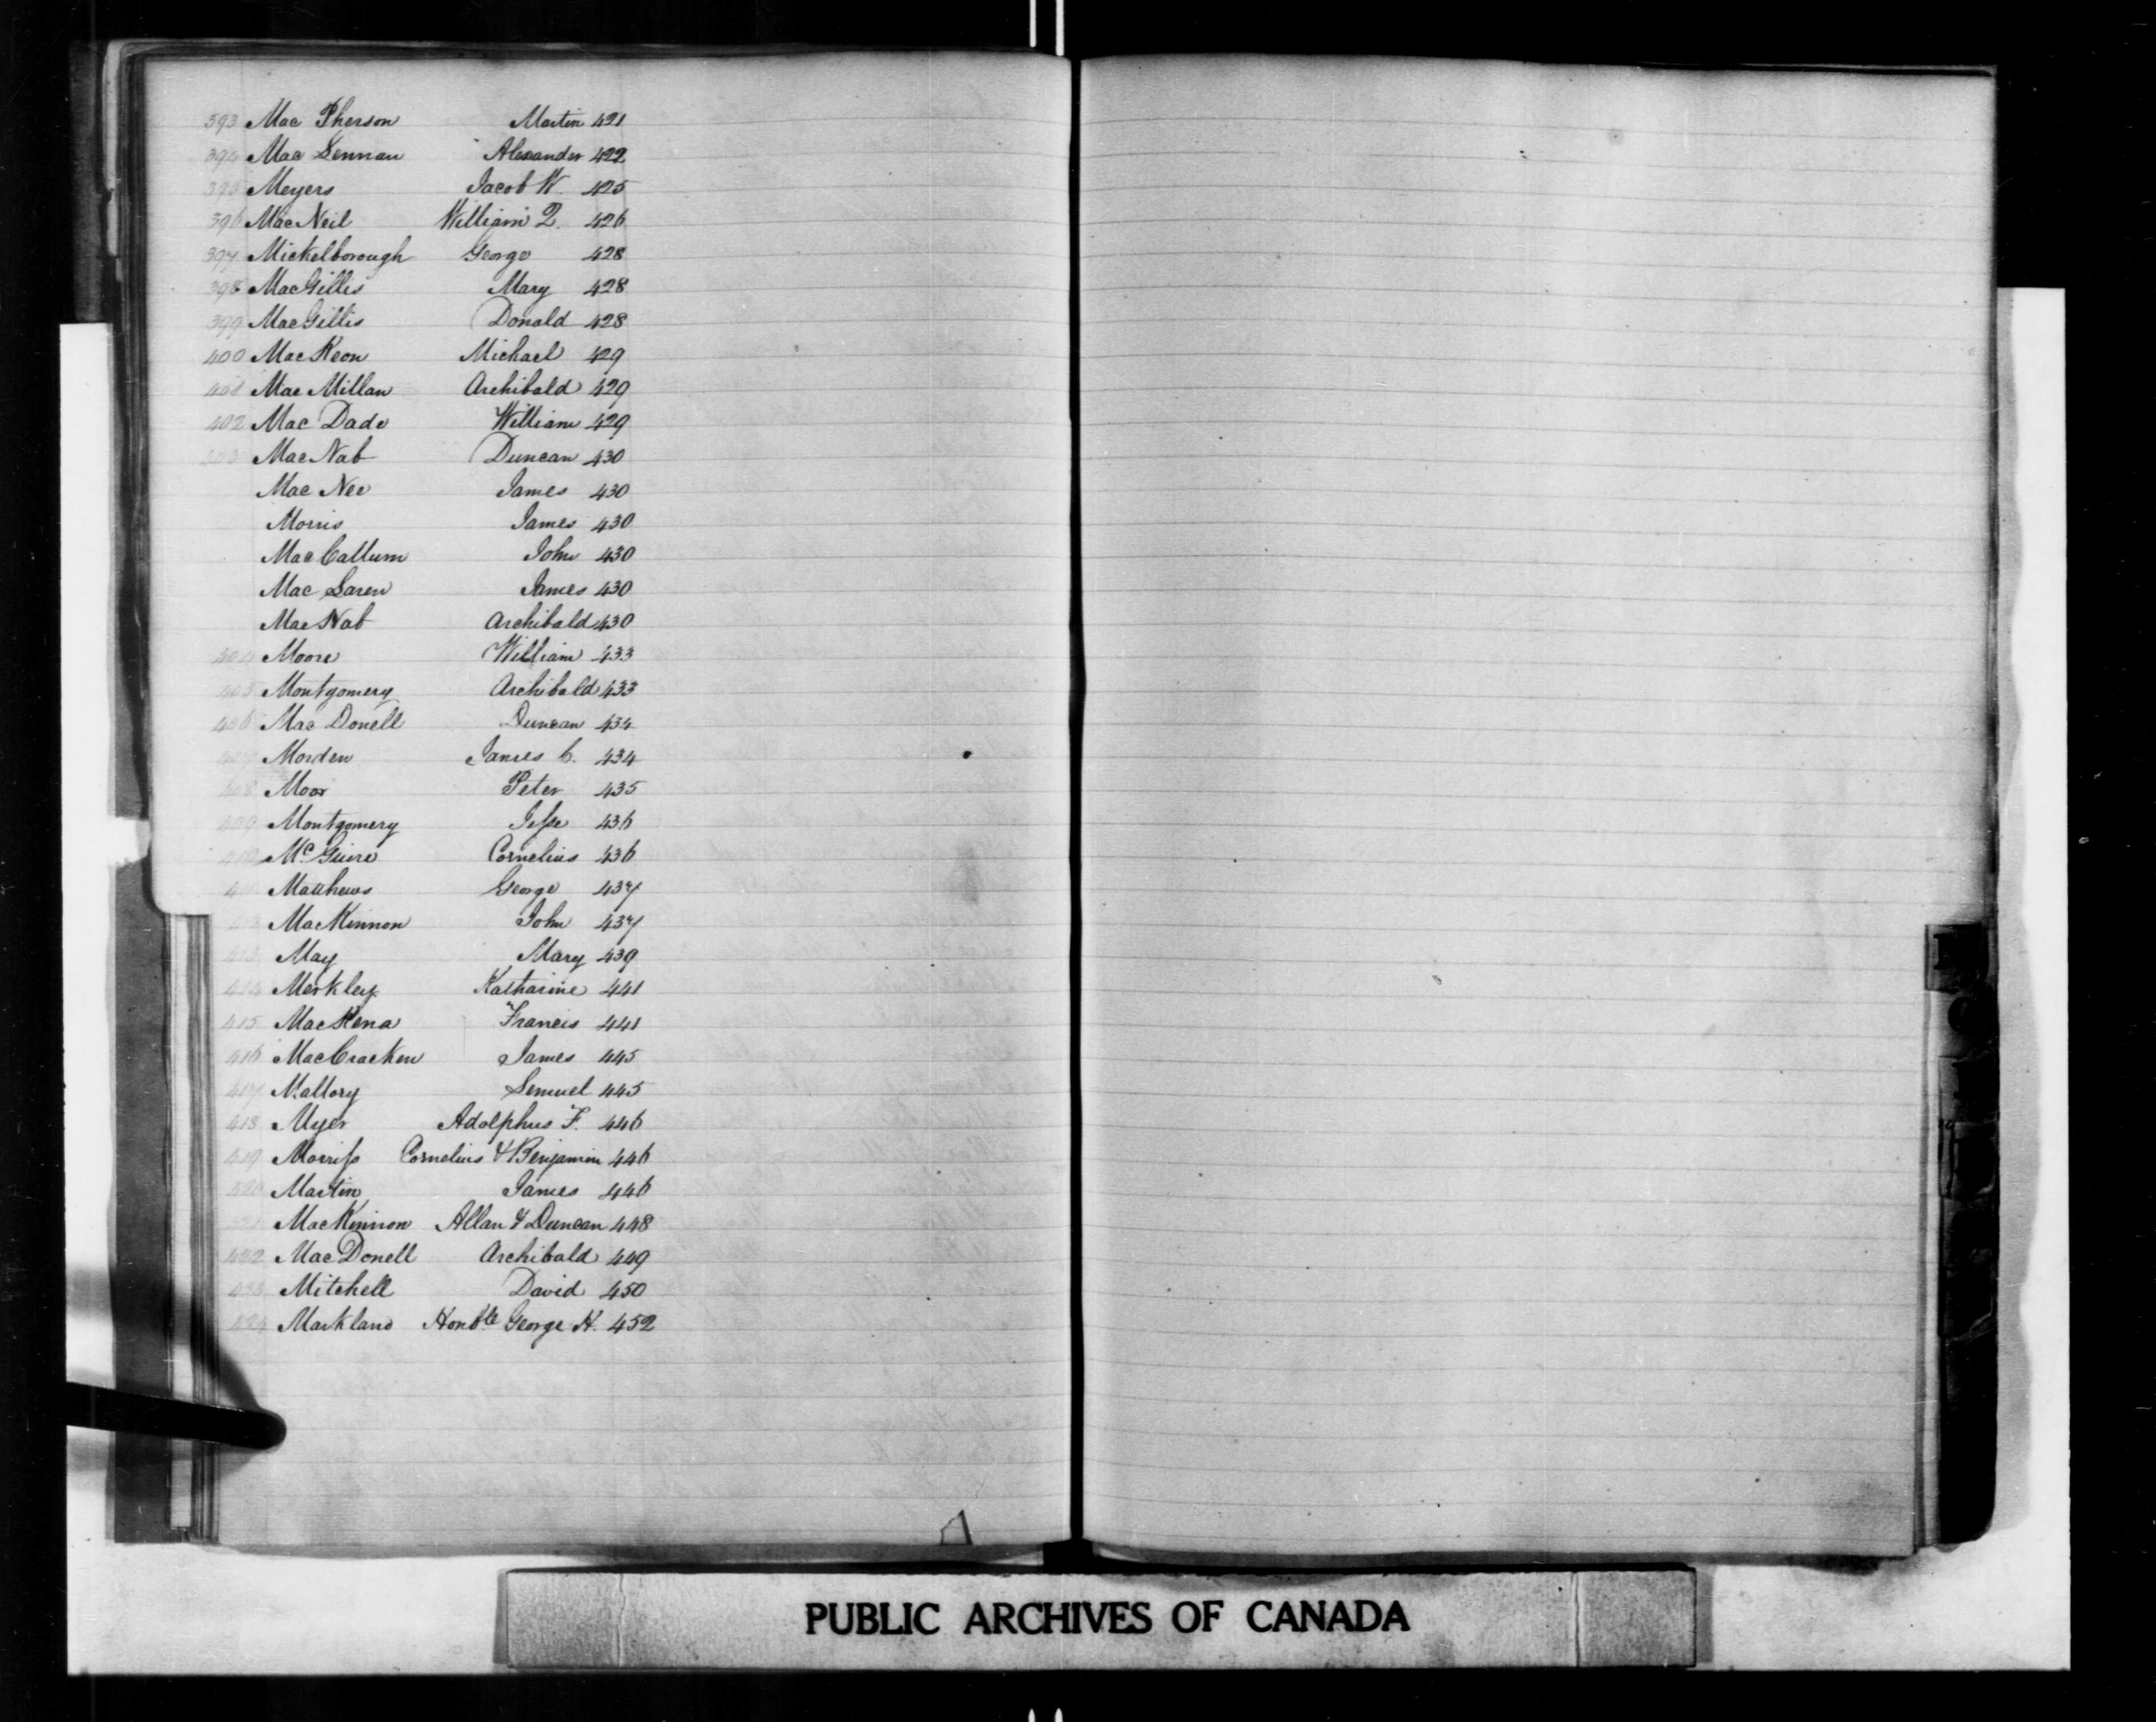 393 Mac Pherson Martin 421
394 Mac Lennan Alexander 422
395 Meyers Jacob W. 425
396 MacNeil William Q. 426
397 Mickelborough George 428
398 MacGillis Mary 428
399 MacGillis Donald 428
400 Mac Keon Michael 429
401 Mac Millan Archibald 429
402 Mac Dade William 429
403 Mac Nab Duncan 430
Mac Nee James 430
Morris James 430
MacCallum John 430
Mac Laren James 430
Mac Nab Archibald 430
404 Moore William 433
405 Montgomery Archibald 433
406 Mac Donell Duncan 434
407 Morden James C. 434
408 Moor Peter 435
409 Montgomery Jesse 436
410 Mc Guire Cornelius 436
Matthews George 437
MacKinnon John 437
413 May Mary 439
414 Merkley Katharine 441
415 MacKena Francis 441
416 MacCracken James 445
417 Mallory Lemuel 445
418 Myer Adolphus F. 446
419 Morriss Cornelius & Benjamin 446
420 Martin James 446
421 MacKinnon Allan & Duncan 448
422 MacDonell Archibald 449
423 Mitchell David 450
424 Markland Honble George H. 452
PUBLIC ARCHIVES OF CANADA